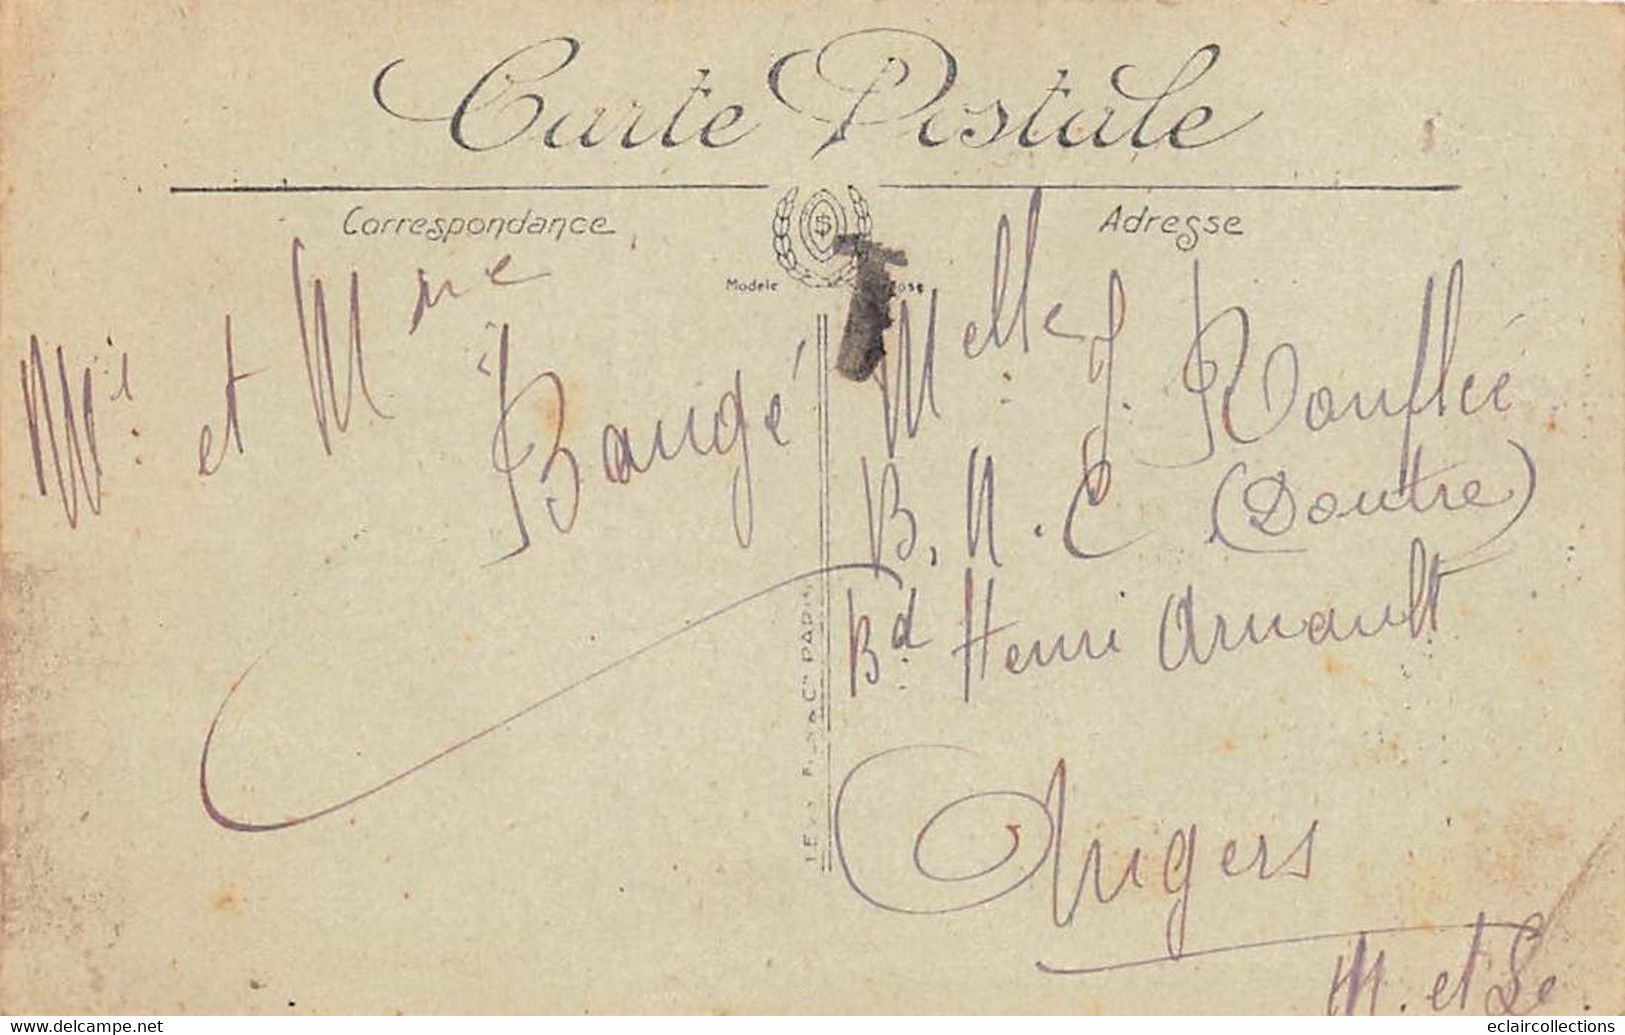 Carte Postale
Correspondance
Adresse
Modèle
T
Mr. et Mme Baugé
Melle J. Rouflié
B. N. C (Doutre)
Bd Henri Arnault
Angers
M. et Le.
& Cie PARIS
www.delcampe.net
eclaircollections